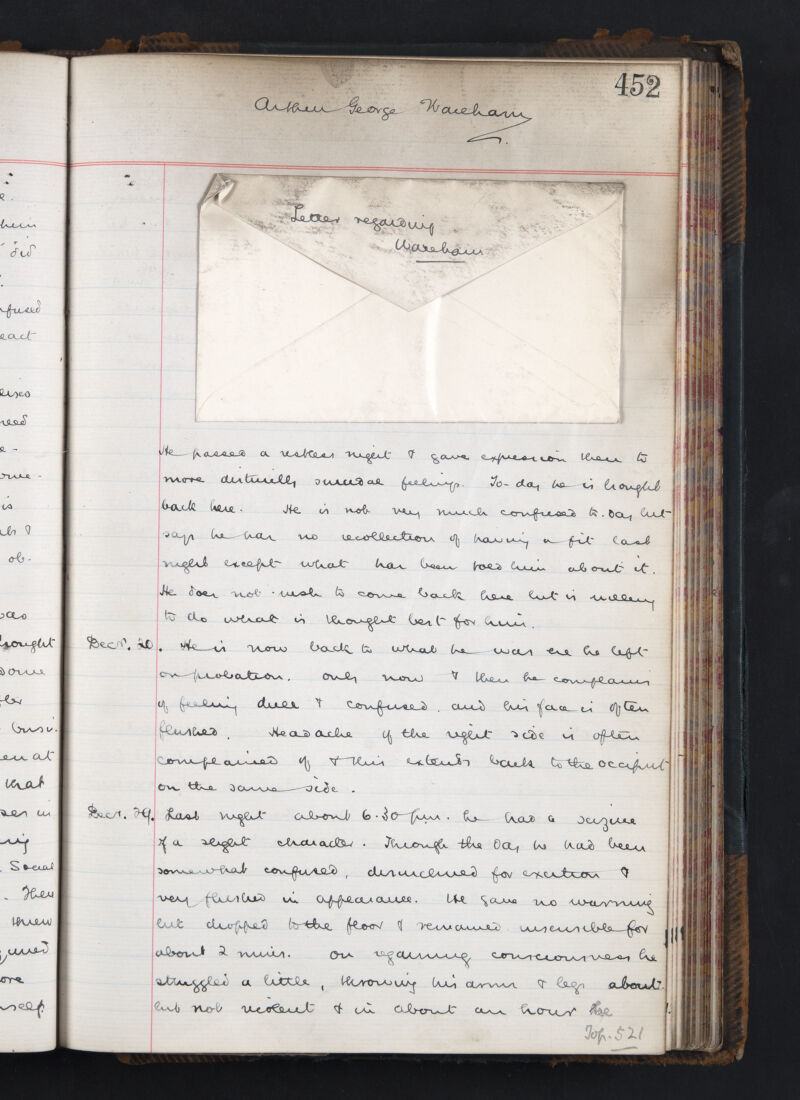 452
Arthur George Wareham
Letter regarding
Wareham
He passed a restless night & gave expression then to
more distinctly suicidal feelings. To-day he is brought
back here. He is not very much confused to-day but
says he has no recollection of having a fit last
night except what has been told him about it.
He does not wish to come back here but is willing
to do what is thought best for him.
Decr. 20. He is now back to what he was ere he left
on probation. Only now & then he complains
of feeling dull & confused and his face is often
flushed. Headache of the right side is often
complained of & this extends back to the occiput
on the same side.
Decr. 29. Last night about 6.30 p.m. he had a seizure
of a slight character. Through the day he had been
somewhat confused, disinclined for exertion &
very flushed in appearance. He gave no warning
but dropped to the floor & remained insensible for
about 2 mins. On regaining consciousness he
struggled a little, throwing his arms & legs about
but not violent & in about an hour he
To p. 521